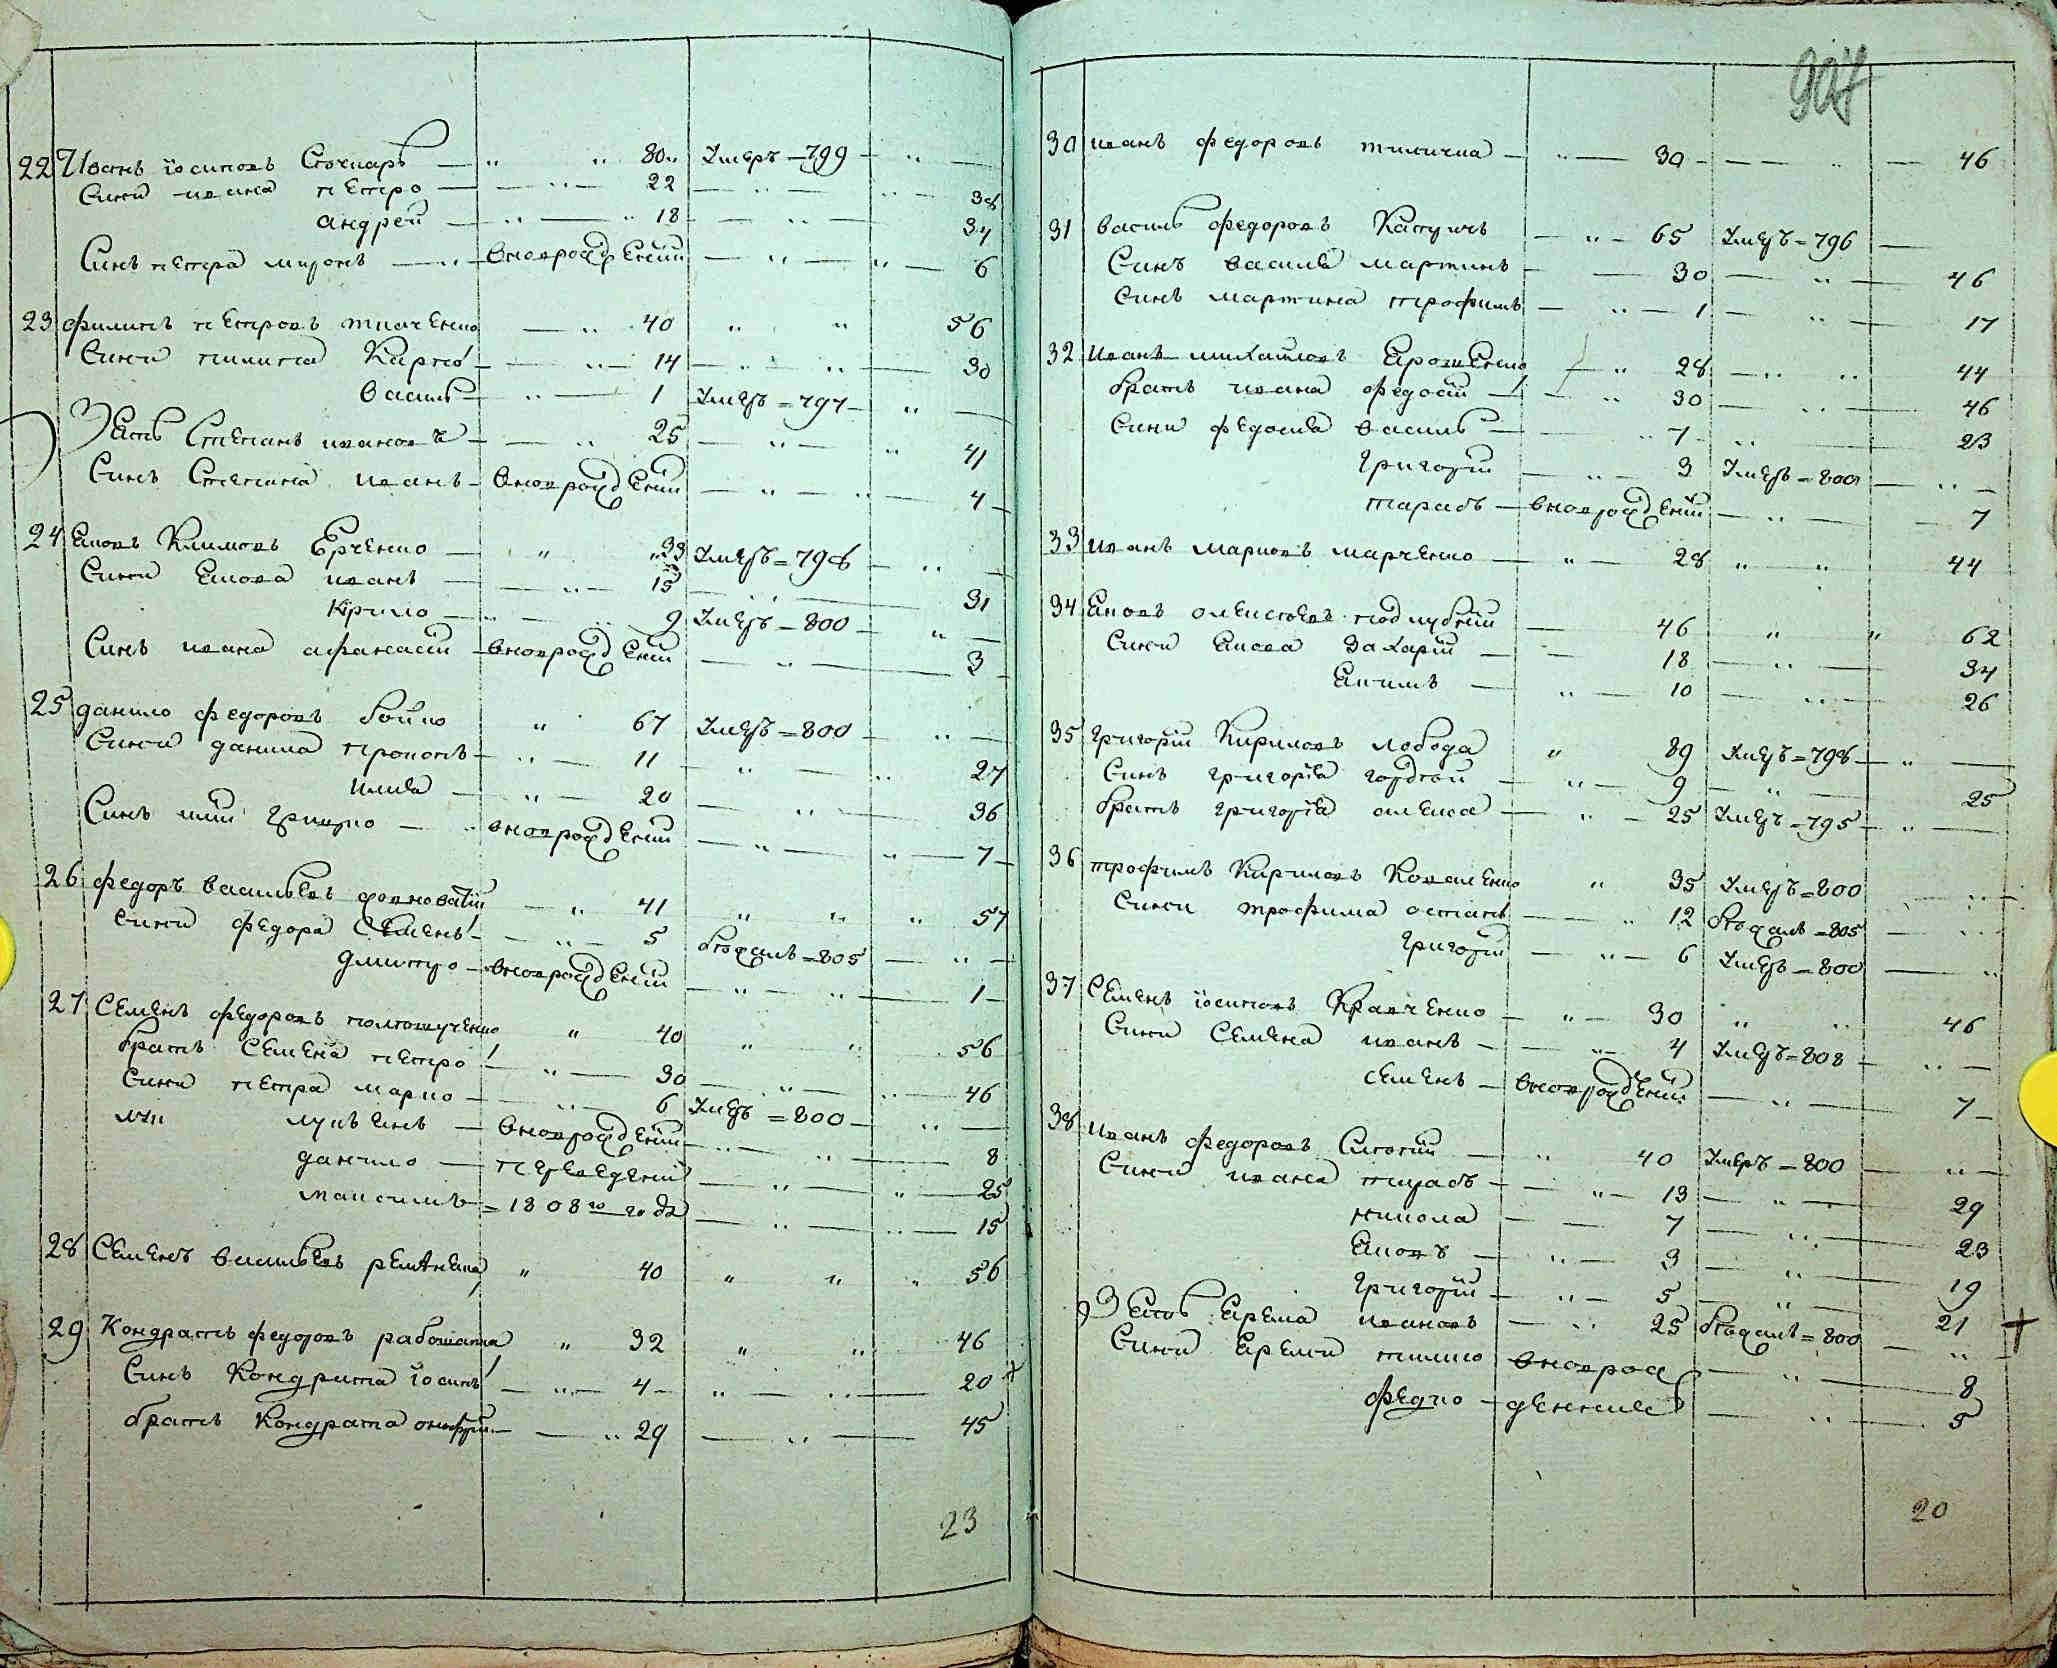 22 Иванъ іосиповъ Сточаръ 80 Умеръ 799
Сини ивана петро 22 38
андрей 18 34
Синъ петра миронъ вноврожденій 6
23 филипъ петровъ ткаченко 40 56
Сини пилипа Карпо 14 30
василь 1 Умеръ 797
Зять Степанъ ивановъ 25 41
Синъ Степана иванъ вноврожденій 4
24 Яковъ Климовъ Юрченко 33 Умеръ 798
Сини Якова иванъ 15 31
Кірило 9 Умеръ 800
Синъ ивана афанасій вноврожденій 3
25 данило федоровъ бойко 67 Умеръ 800
Сини данила прокопъ 11 27
илия 20 36
Синъ иліи Грицко вноврожденій 7
26 федоръ васильевъ 41 57
Сини федора Семенъ 5 бѣжалъ 805
дмитро вноврожденій 1
27 Семенъ федоровъ 40 56
братъ Семена петро 30 46
Сини петра марко 6 Умеръ 800
лукъянъ вноврожденій 8
данило переведеній 25
максимъ 1808го года 15
28 Семенъ васильевъ 40 56
29 Кондратъ федоровъ 32 46
Синъ Кондрата іосипъ 4 20
братъ Кондрата онофрій 29 45
23
907
30 иванъ федоровъ 30 46
31 василь федоровъ 65 Умеръ 796
Синъ василя мартинъ 30 46
Синъ мартина трофимъ 1 17
32 Иванъ михайловъ Ярошенко 28 44
братъ ивана федосій 30 46
Сини федосия василь 7 23
Григорій 3 Умеръ 800
тарасъ вноврожденій 7
33 Иванъ марковъ марченко 28 44
34 Яковъ олексіевъ поддубній 46 62
Сини Якова Захарій 18 34
Якимъ 10 26
35 Григорій Кириловъ лобода 39 Умеръ 798
Синъ григорія гордѣй 9 25
братъ григорія олекса 25 Умеръ 795
36 трофимъ Кириловъ Коваленко 35 Умеръ 800
Сини трофима остапъ 12 бѣжалъ 805
Григорій 6 Умеръ 800
37 Семенъ іосиповъ Кравченко 30 46
Сини Семена иванъ 4 Умеръ 808
семенъ вноврожденій 7
38 Иванъ федоровъ 40 Умеръ 800
Сини ивана тарасъ 13 29
никола 7 23
Яковъ 3 19
Григорій 5 21
Зять Ярема ивановъ 25 бѣжалъ 800
Сини Яреми пилипо вноврож 8
федко денние 5
20